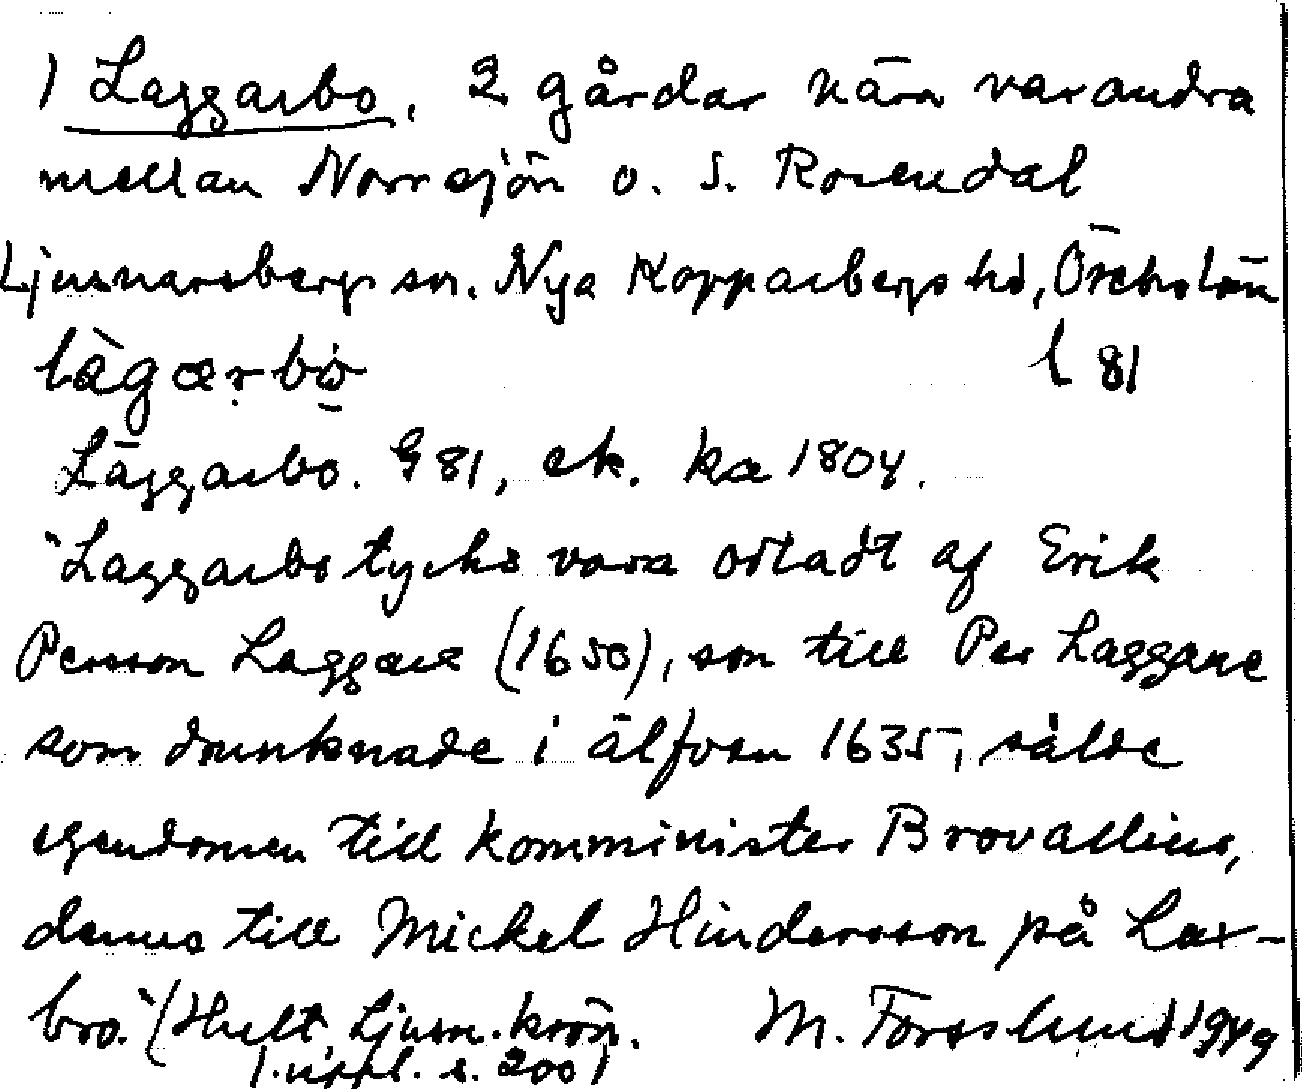 1 Laggarbo, 2 gårdar nära varandra
mellan Norrsjön o. S. Rosendal
Ljusnarsberg sn. Nya Kopparbergs hd, Örebro län
làgærbò l 81
Läggarbo. G 81, ek. ka 1804.
"Laggarbo tycks vara odladt af Erik
Persson Laggare (1650), son till Per Laggare
som drunknade i älfven 1635, sålde
egendomen till komminister Brovallius,
denne till Mickel Hindersson på Lax-
bro." (Hult, Ljusn. krön. M. Forsslund 1949
1. uppl. s. 200)